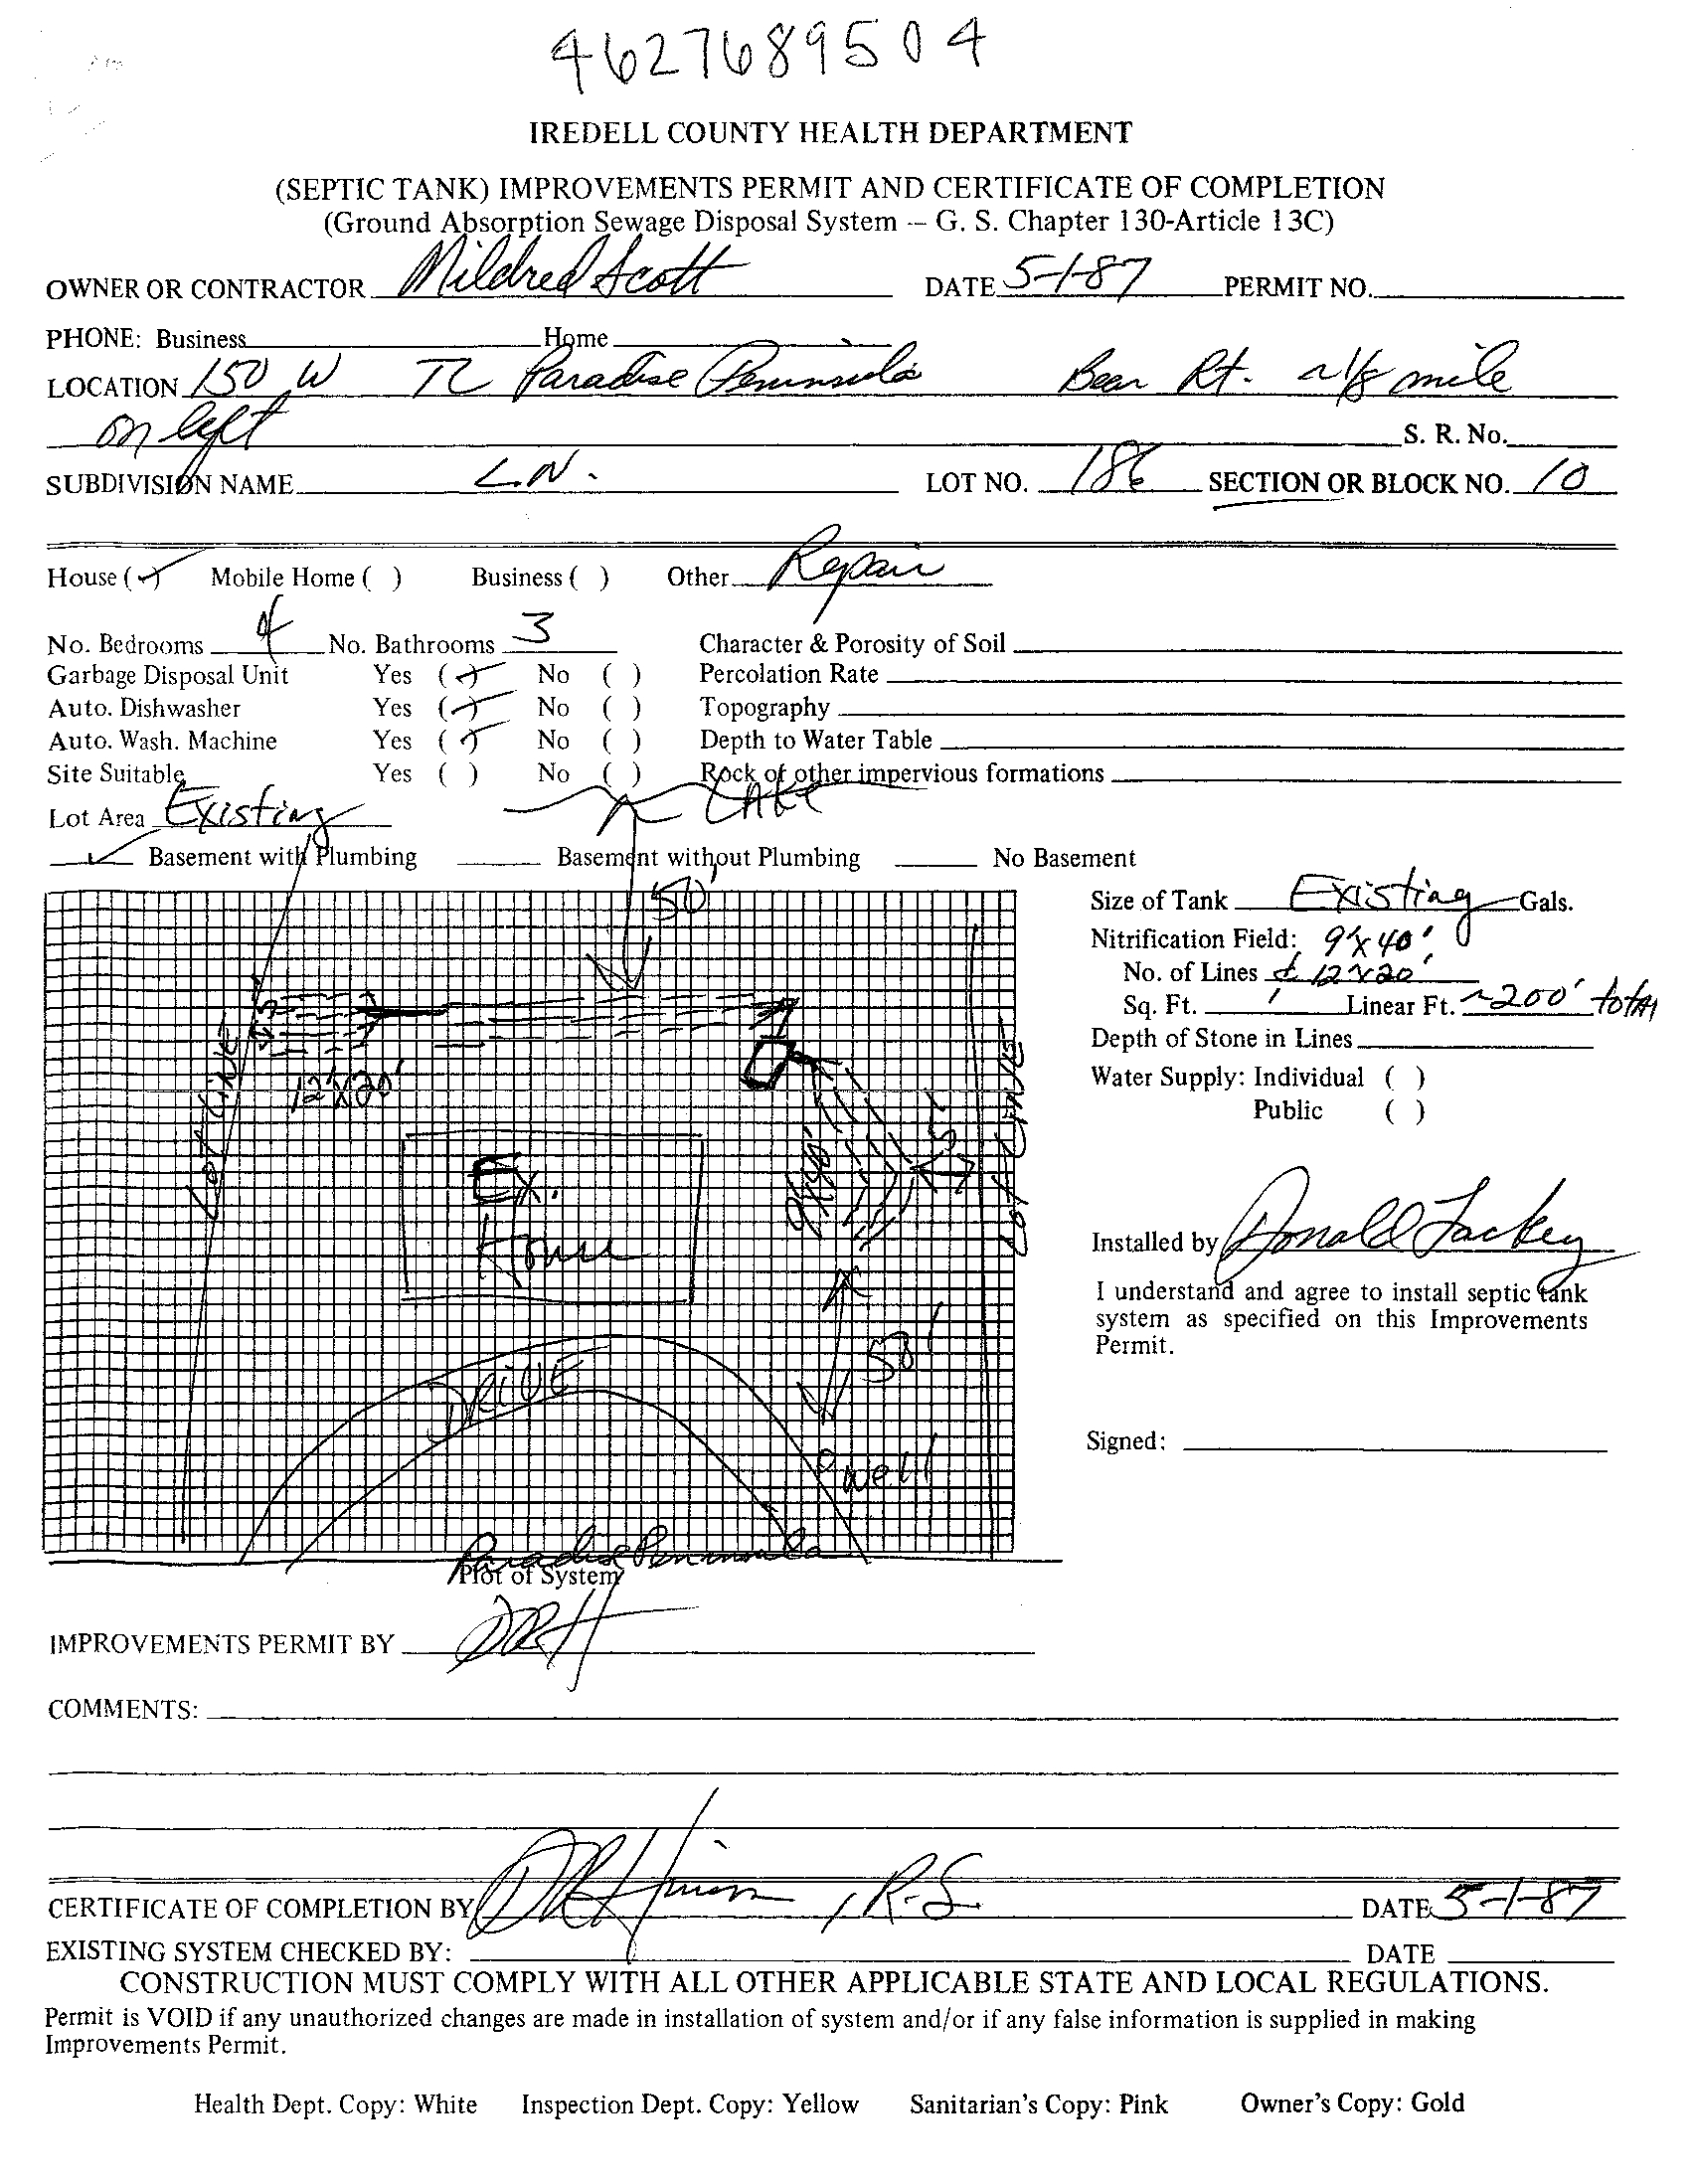 4627689504
IREDELL COUNTY HEALTH DEPARTMENT
(SEPTIC TANK) IMPROVEMENTS PERMIT AND CERTIFICATE OF COMPLETION
(Ground Absorption Sewage Disposal System – G. S. Chapter 130-Article 13C)
OWNER OR CONTRACTOR Mildred Scott DATE 5-1-87 PERMIT NO.
PHONE: Business Home
LOCATION 150 W TL Paradise Peninsula Bear Rt. ~1/8 mile
on left S. R. No.
SUBDIVISION NAME L.N. LOT NO. 186 SECTION OR BLOCK NO. 10
House (✓) Mobile Home ( ) Business ( ) Other Repair
No. Bedrooms 4 No. Bathrooms 3 Character & Porosity of Soil
Garbage Disposal Unit Yes (✓) No ( ) Percolation Rate
Auto. Dishwasher Yes (✓) No ( ) Topography
Auto. Wash. Machine Yes (✓) No ( ) Depth to Water Table
Site Suitable Yes ( ) No ( ) Rock of other impervious formations
Lot Area Existing LAKE
✓ Basement with Plumbing Basement without Plumbing No Basement
50'
Size of Tank Existing Gals.
Nitrification Field: 9'x40'
No. of Lines & 12'x20'
Sq. Ft. Linear Ft. ~200' total
Depth of Stone in Lines
Water Supply: Individual ( )
Public ( )
5'
LOT LINE
12'x20'
Ex.
House
9'x40'
5'
Lot Line
50'
DRIVE
well
Installed by Donald Lackey
I understand and agree to install septic tank
system as specified on this Improvements
Permit.
Signed:
Paradise Peninsula
Plot of System
IMPROVEMENTS PERMIT BY DRH
COMMENTS:
CERTIFICATE OF COMPLETION BY , R.S. DATE 5-1-87
EXISTING SYSTEM CHECKED BY: DATE
CONSTRUCTION MUST COMPLY WITH ALL OTHER APPLICABLE STATE AND LOCAL REGULATIONS.
Permit is VOID if any unauthorized changes are made in installation of system and/or if any false information is supplied in making
Improvements Permit.
Health Dept. Copy: White Inspection Dept. Copy: Yellow Sanitarian's Copy: Pink Owner's Copy: Gold